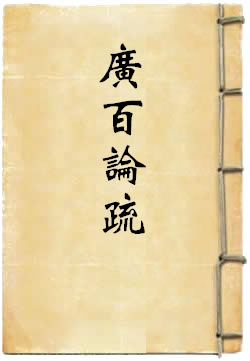 廣百論疏